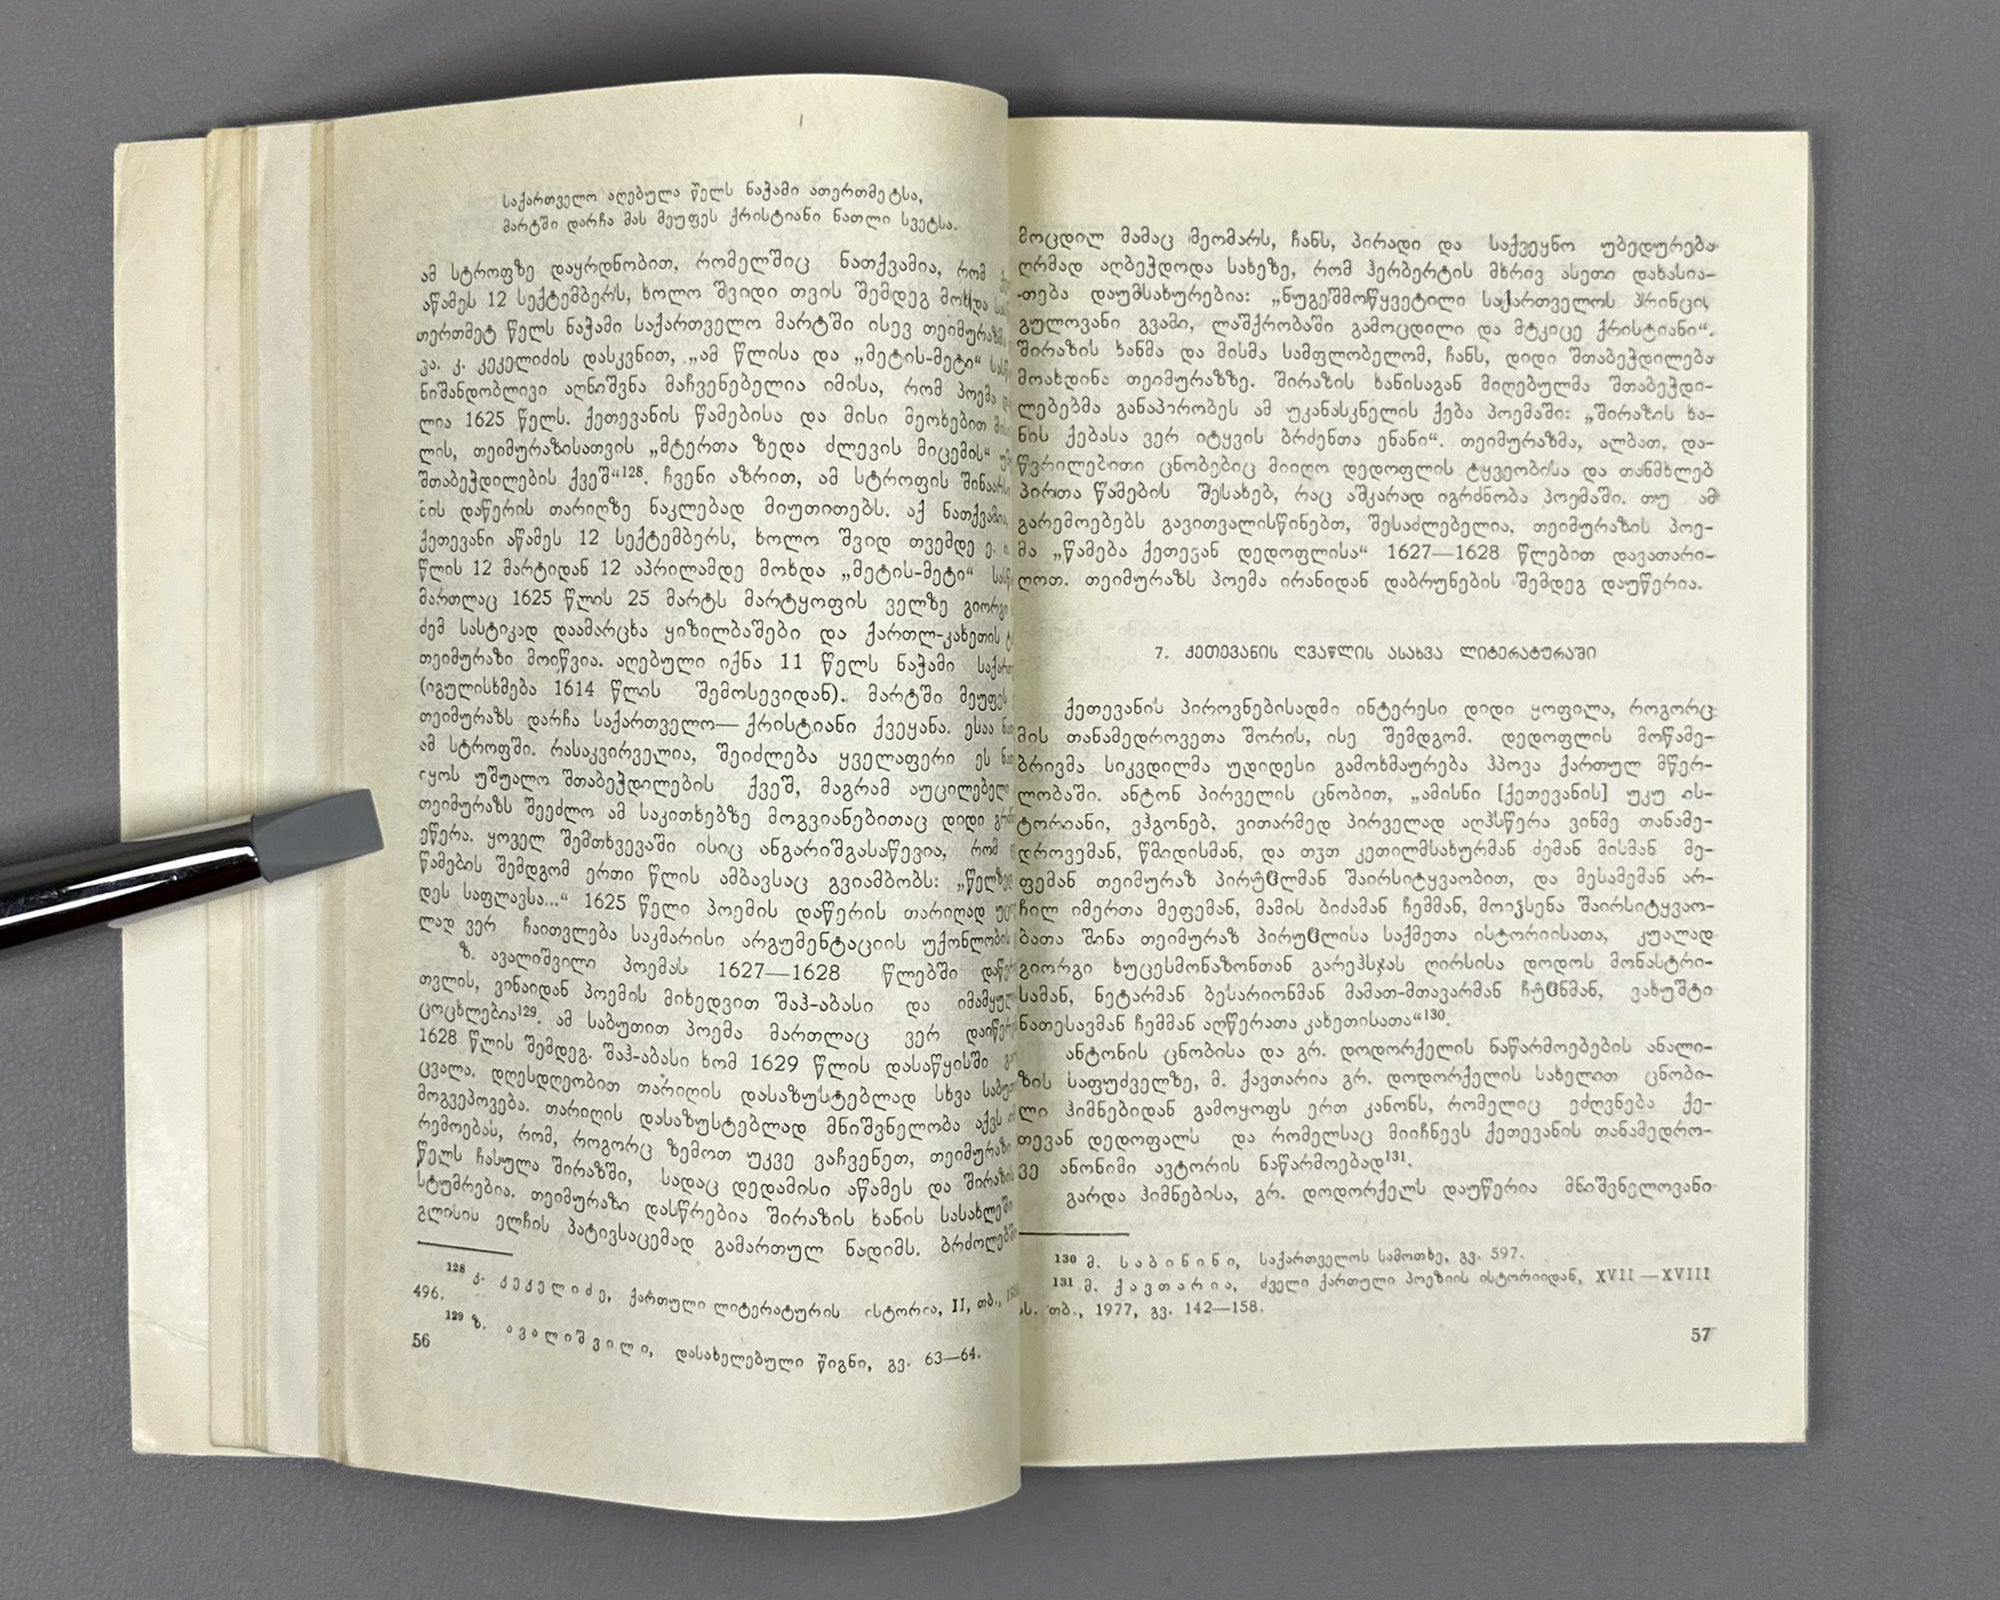 საქართველო აღებულა წელს ნაჭამი ათერთმეტსა,
მარტში დარჩა მას მეუფეს ქრისტიანი ნათლი სვეტსა.
ამ სტროფზე დაყრდნობით, რომელშიც ნათქვამია, რომ
აწამეს 12 სექტემბერს, ხოლო შვიდი თვის შემდეგ მოხდა
თერთმეტ წელს ნაჭამი საქართველო მარტში ისევ თეიმურაზმა
პა. კ. კეკელიძის დასკვნით, „ამ წლისა და „მეტის-მეტი“
ნიშანდობლივი აღნიშვნა მაჩვენებელია იმისა, რომ პოემა
ლია 1625 წელს. ქეთევანის წამებისა და მისი მეოხებით
ლის, თეიმურაზისათვის „მტერთა ზედა ძლევის მიცემის“
შთაბეჭდილების ქვეშ“128. ჩვენი აზრით, ამ სტროფის
ის დაწერის თარიღზე ნაკლებად მიუთითებს. აქ ნათქვამია,
ქეთევანი აწამეს 12 სექტემბერს, ხოლო შვიდ თვემდე ე.
წლის 12 მარტიდან 12 აპრილამდე მოხდა „მეტის-მეტი“
მართლაც 1625 წლის 25 მარტს მარტყოფის ველზე გიორგი
ძემ სასტიკად დაამარცხა ყიზილბაშები და ქართლ-კახეთის
თეიმურაზი მოიწვია. აღებული იქნა 11 წელს ნაჭამი
(იგულისხმება 1614 წლის შემოსევიდან). მარტში მეუფეს
თეიმურაზს დარჩა საქართველო— ქრისტიანი ქვეყანა. ესაა
ამ სტროფში. რასაკვირველია, შეიძლება ყველაფერი ეს
იყოს უშუალო შთაბეჭდილების ქვეშ, მაგრამ
თეიმურაზს შეეძლო ამ საკითხებზე მოგვიანებითაც დიდი
ეწერა. ყოველ შემთხვევაში ისიც ანგარიშგასაწევია, რომ
წამების შემდგომ ერთი წლის ამბავსაც გვიამბობს:
დეს საფლავსა...“ 1625 წელი პოემის დაწერის თარიღად
ლად ვერ ჩაითვლება საკმარისი არგუმენტაციის უქონლობის
ზ. ავალიშვილი პოემას 1627—1628 წლებში
თვლის, ვინაიდან პოემის მიხედვით შაჰ-აბასი და
ცოცხლებია129. ამ საბუთით პოემა მართლაც ვერ
1628 წლის შემდეგ. შაჰ-აბასი ხომ 1629 წლის დასაწყისში
ცვალა. დღესდღეობით თარიღის დასაზუსტებლად სხვა
მოგვეპოვება. თარიღის დასაზუსტებლად მნიშვნელობა აქვს
რემოებას, რომ, როგორც ზემოთ უკვე ვაჩვენეთ, თეიმურაზი
წელს ჩასულა შირაზში, სადაც დედამისი აწამეს და შირაზის
სტუმრებია. თეიმურაზი დასწრებია შირაზის ხანის სასახლეში
გლისის ელჩის პატივსაცემად გამართულ ნადიმს. ბრძოლებში
128 კ. კეკელიძე, ქართული ლიტერატურის ისტორია, II, თბ.,
496.
129 ზ. ავალიშვილი, დასახელებული წიგნი, გვ. 63—64.
56
მოცდილ მამაც მეომარს, ჩანს, პირადი და საქვეყნო უბედურება
ღრმად აღბეჭდოდა სახეზე, რომ ჰერბერტის მხრივ ასეთი დახასია-
თება დაუმსახურებია: „ნუგეშმოწყვეტილი საქართველოს პრინცი,
გულოვანი გვამი, ლაშქრობაში გამოცდილი და მტკიცე ქრისტიანი“.
შირაზის ხანმა და მისმა სამფლობელომ, ჩანს, დიდი შთაბეჭდილება
მოახდინა თეიმურაზზე. შირაზის ხანისაგან მიღებულმა შთაბეჭდი-
ლებებმა განაპირობეს ამ უკანასკნელის ქება პოემაში: „შირაზის ხა-
ნის ქებასა ვერ იტყვის ბრძენთა ენანი“. თეიმურაზმა, ალბათ, და-
წვრილებითი ცნობებიც მიიღო დედოფლის ტყვეობისა და თანმხლებ
პირთა წამების შესახებ, რაც აშკარად იგრძნობა პოემაში. თუ ამ
გარემოებებს გავითვალისწინებთ, შესაძლებელია, თეიმურაზის პოე-
მა „წამება ქეთევან დედოფლისა“ 1627—1628 წლებით დავათარი-
ღოთ. თეიმურაზს პოემა ირანიდან დაბრუნების შემდეგ დაუწერია.
7. ქეთევანის ღვაწლის ასახვა ლიტერატურაში
ქეთევანის პიროვნებისადმი ინტერესი დიდი ყოფილა, როგორც
მის თანამედროვეთა შორის, ისე შემდგომ. დედოფლის მოწამე-
ბრივმა სიკვდილმა უდიდესი გამოხმაურება ჰპოვა ქართულ მწერ-
ლობაში. ანტონ პირველის ცნობით, „ამისნი [ქეთევანის] უკუ ის-
ტორიანი, ვჰგონებ, ვითარმედ პირველად აღჰსწერა ვინმე თანამე-
დროვემან, წმიდისმან, და თჳთ კეთილმსახურმან ძემან მისმან მე-
ფემან თეიმურაზ პირუ̂ჱლმან შაირსიტყვაობით, და მესამემან არ-
ჩილ იმერთა მეფემან, მამის ბიძამან ჩემმან, მოიჴსენა შაირსიტყვაო-
ბათა შინა თეიმურაზ პირუჱლისა საქმეთა ისტორიისათა, კუალად
გიორგი ხუცესმონაზონთან გარეჰსჯას ღირსისა დოდოს მონასტრი-
სამან, ნეტარმან ბესარიონმან მამათ-მთავარმან ჩუ̂ჱნმან, ვახუშტი
ნათესავმან ჩემმან აღწერათა კახეთისათა“130.
ანტონის ცნობისა და გრ. დოდორქელის ნაწარმოებების ანალი-
ზის საფუძველზე, მ. ქავთარია გრ. დოდორქელის სახელით ცნობი-
ლი ჰიმნებიდან გამოყოფს ერთ კანონს, რომელიც ეძღვნება ქე-
თევან დედოფალს და რომელსაც მიიჩნევს ქეთევანის თანამედრო-
ვე ანონიმი ავტორის ნაწარმოებად131.
გარდა ჰიმნებისა, გრ. დოდორქელს დაუწერია მნიშვნელოვანი
130 მ. საბინინი, საქართველოს სამოთხე, გვ. 597.
131 მ. ქავთარია, ძველი ქართული პოეზიის ისტორიიდან, XVII—XVIII
სს. თბ., 1977, გვ. 142—158.
57